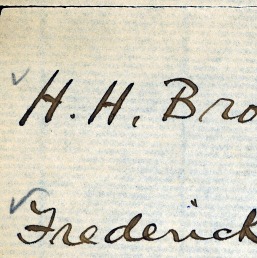 H. H. Bro
Frederick